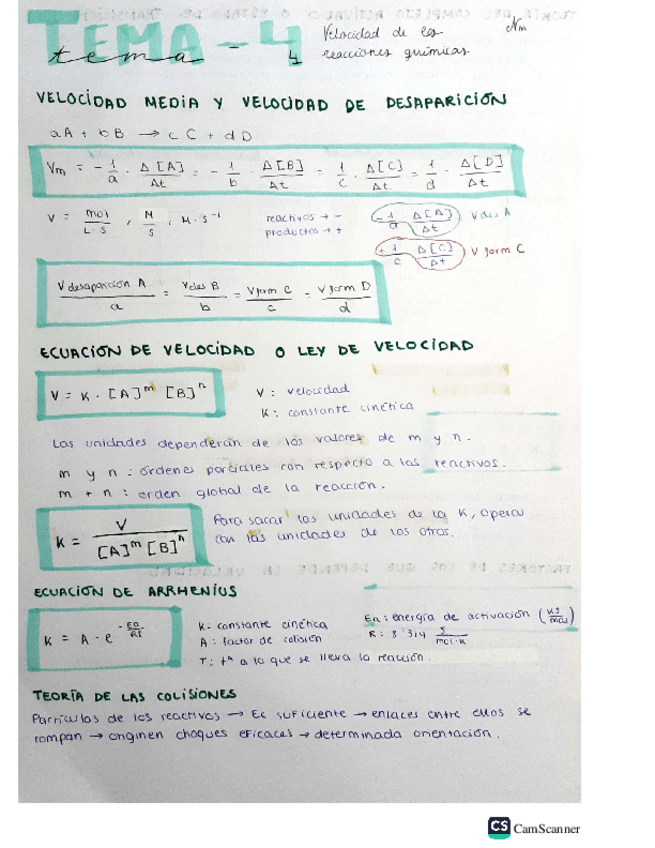 TEMA - 4
tema 4
Velocidad de las
reacciones químicas
VELOCIDAD MEDIA Y VELOCIDAD DE DESAPARICIÓN
aA + bB → cC + dD
Vm = - 1/a · Δ[A]/Δt = - 1/b · Δ[B]/Δt = 1/c · Δ[C]/Δt = 1/d · Δ[D]/Δt
V = mol/L·s , M/s , M·s⁻¹
reactivos → -
productos → +
- 1/a Δ[A]/Δt V des A
+ 1/c Δ[C]/Δt V form C
V desaparición A/a = V des B/b = V form C/c = V form D/d
ECUACIÓN DE VELOCIDAD O LEY DE VELOCIDAD
V = K · [A]ᵐ [B]ⁿ
V : velocidad
K : constante cinética
Las unidades dependerán de los valores de m y n.
m y n : órdenes parciales con respecto a los reactivos.
m + n : orden global de la reacción.
K = V/[A]ᵐ[B]ⁿ
Para sacar las unidades de la K, operar
con las unidades de los otros.
ECUACIÓN DE ARRHENIUS
K = A · e^-Ea/RT
K: constante cinética
A : factor de colisión
T : tª a la que se lleva la reacción.
Ea : energía de activación (KJ/mol)
R : 8'314 J/mol·K
TEORÍA DE LAS COLISIONES
Partículas de los reactivos → Ec suficiente → enlaces entre ellos se
rompan → originen choques eficaces → determinada orientación.
CS CamScanner